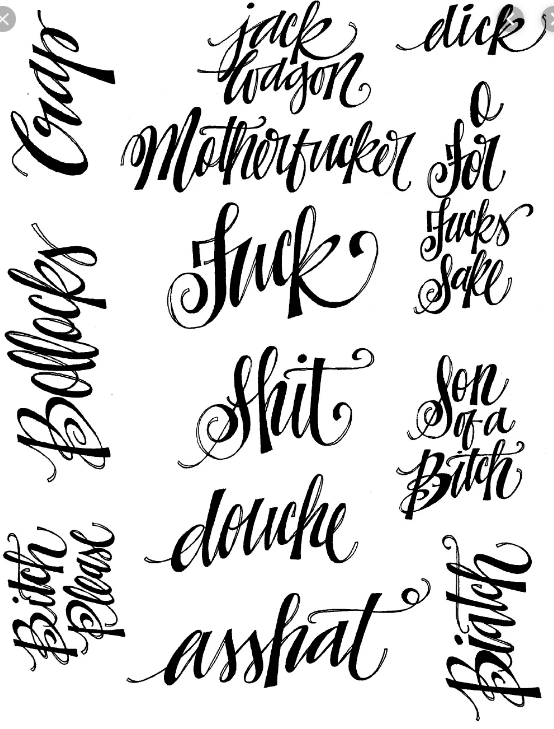 Crap
jack
wagon
dick
Motherfucker
O
For
Fucks
Sake
Fuck
Bollocks
Shit
Son
of a
Bitch
douche
Bitch
Please
asshat
Biatch